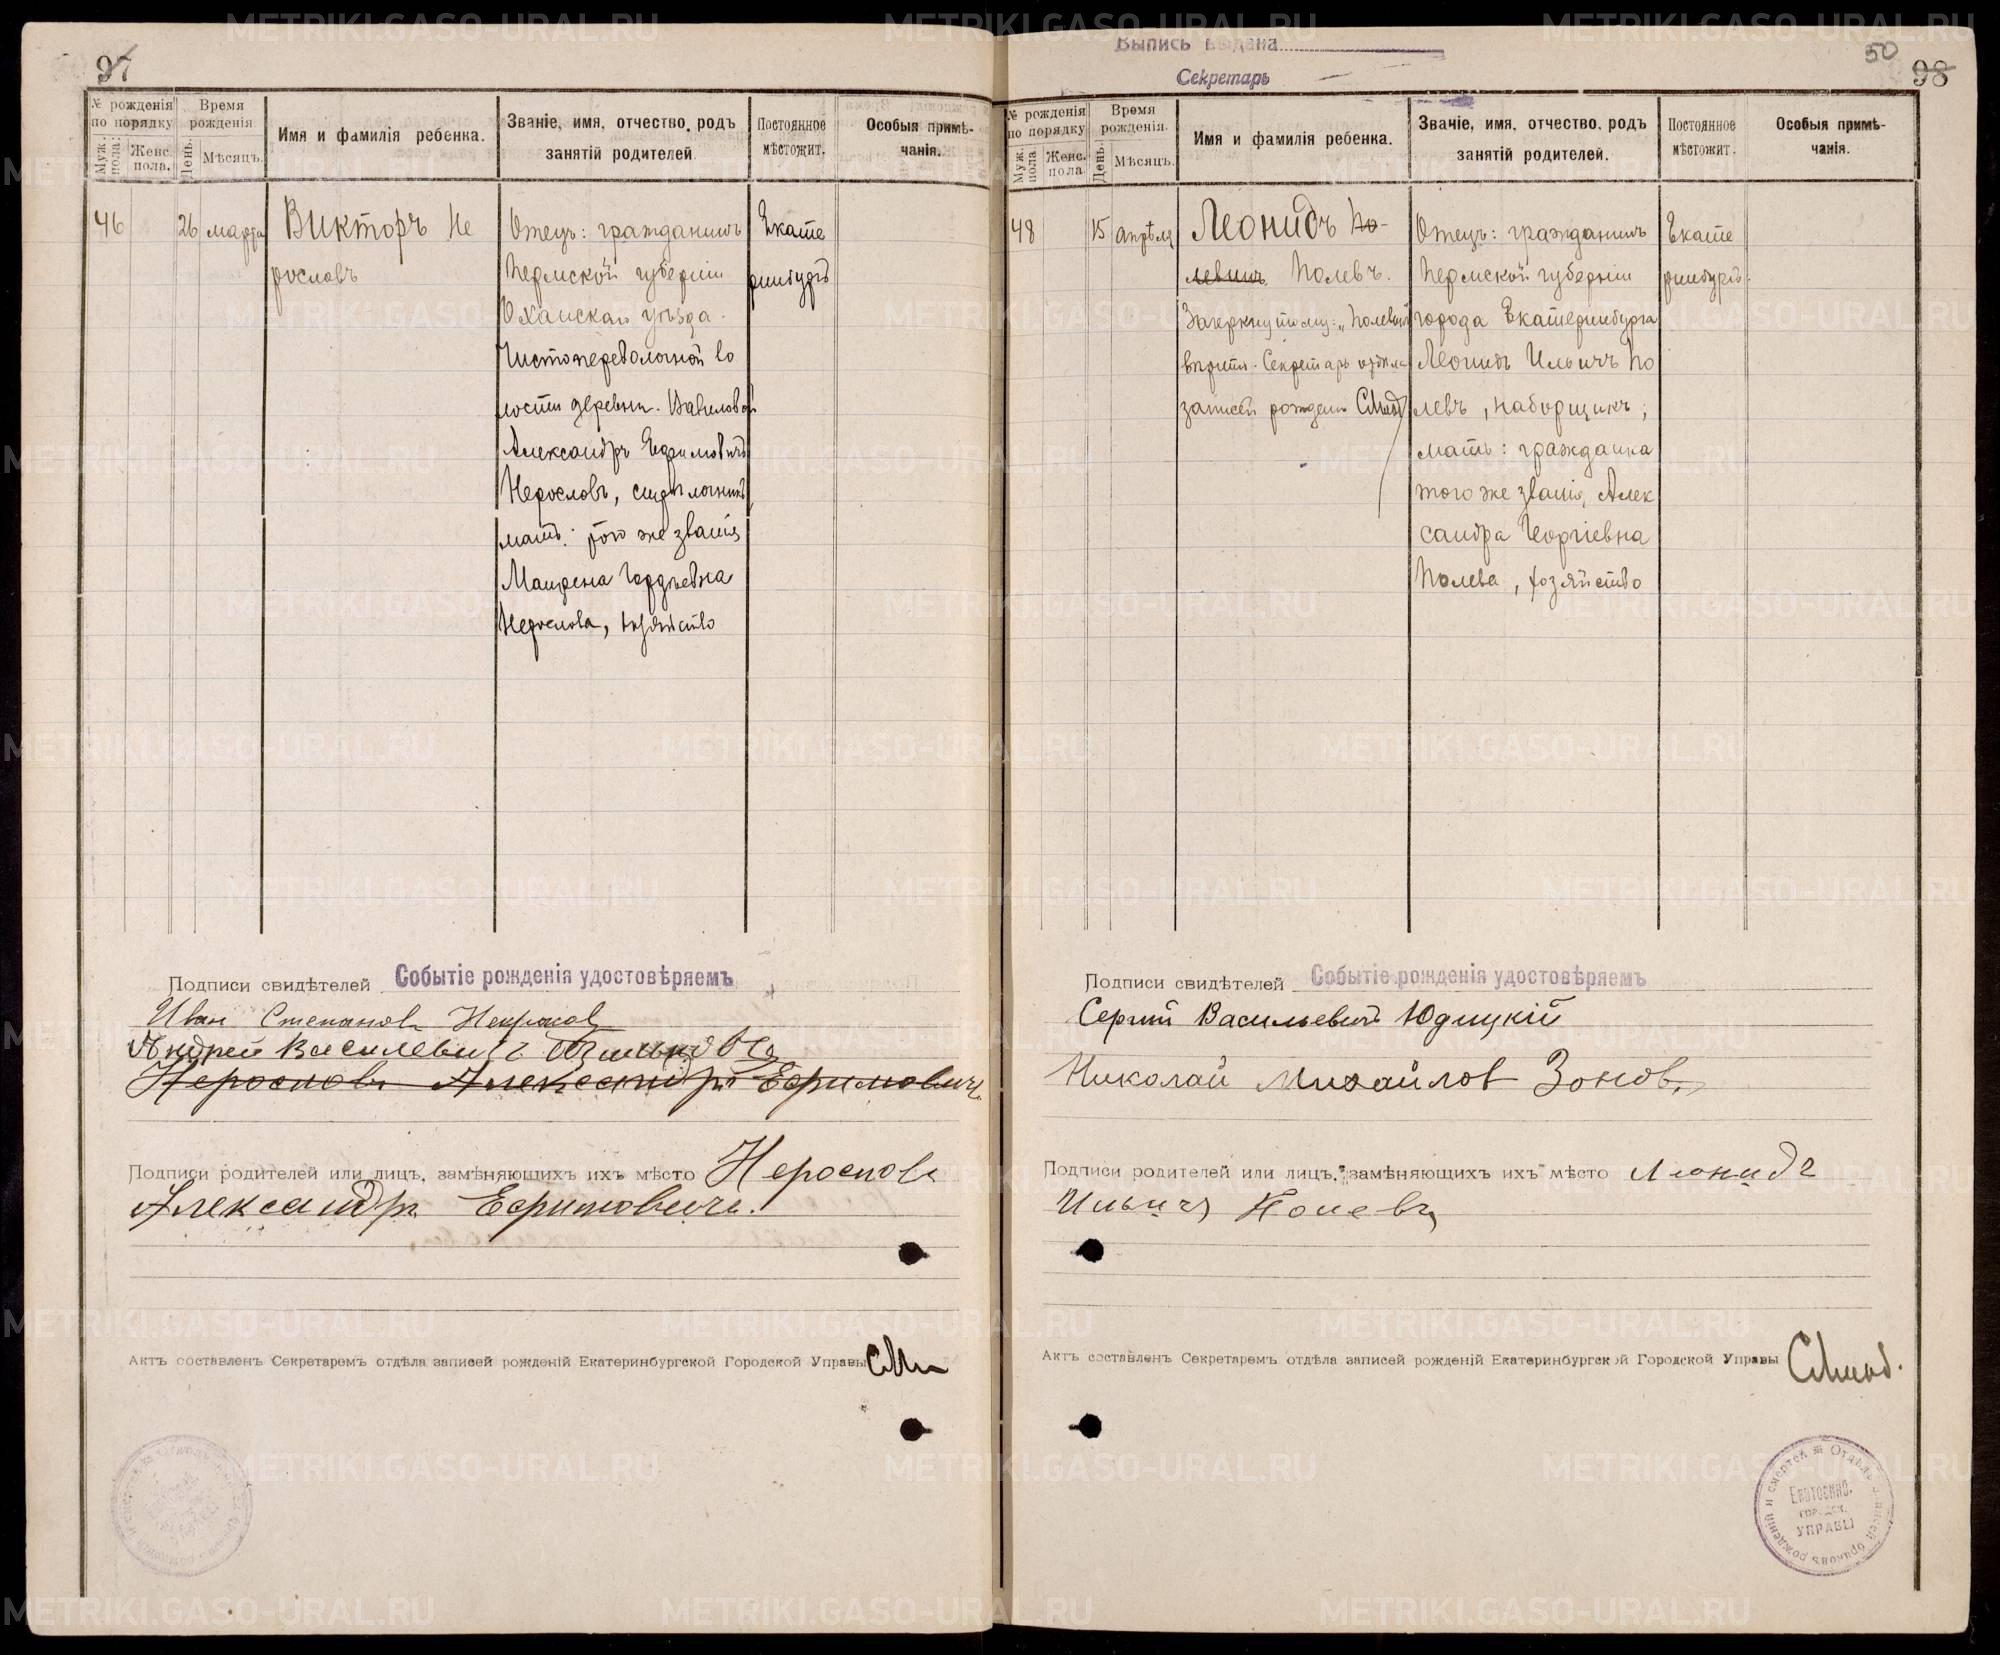 97
№ рожденія по порядку
Муж. пола.
Женс. пола.
Время рожденія
День.
Мѣсяцъ.
Имя и фамилія ребенка.
Званіе, имя, отчество, родъ
занятій родителей.
Постоянное
мѣстожит.
Особыя примѣ-
чанія.
46
26 марта
Викторъ Не
рословъ
Отецъ: гражданинъ
Пермской губерніи
Оханскаго уѣзда
Чистопереволочной во
лости деревни Вавиловой
Александръ Ефимовичъ
Нерословъ,
мать: того же званія
Гордѣевна
Нерослова, хозяйство
Екате
ринбургъ
Подписи свидѣтелей Событіе рожденія удостовѣряемъ
Иван Степанова Некрасов
Андрей Василевичъ
Нерословъ Александръ Ефимовичъ
Подписи родителей или лицъ, замѣняющихъ ихъ мѣсто Нерословъ
Александръ Ефимовичъ.
Актъ составленъ Секретаремъ отдѣла записей рожденій Екатеринбургской Городской Управы
Выпись выдана
Секретарь
50
98
№ рожденія по порядку
Муж. пола
Женс. пола
Время рожденія.
День.
Мѣсяцъ.
Имя и фамилія ребенка.
Званіе, имя, отчество, родъ
занятій родителей.
Постоянное
мѣстожит.
Особыя примѣ-
чанія.
48
15 апрѣля
Леонидъ По-
левинъ Полевъ.
Зачеркнутому: „Полевинъ
вѣрить. Секретарь отдѣла
записей рожденій
Отецъ: гражданинъ
Пермской губерніи
города Екатеринбурга
Леонидъ Ильичъ По
левъ, наборщикъ;
мать: гражданка
того же званія, Алек
сандра Георгіевна
Полева, хозяйство
Екате
ринбургъ
Подписи свидѣтелей Событіе рожденія удостовѣряемъ
Сергий Васильевичъ Юдицкій
Николай Михайлов Зоновъ
Подписи родителей или лицъ, замѣняющихъ ихъ мѣсто Леонидъ
Ильичъ Полевъ
Актъ составленъ Секретаремъ отдѣла записей рожденій Екатеринбургской Городской Управы
Отдѣлъ записей браковъ рожденій и смертей
Екатеринб.
ГОРОДСК.
УПРАВЫ
METRIKI.GASO-URAL.RU